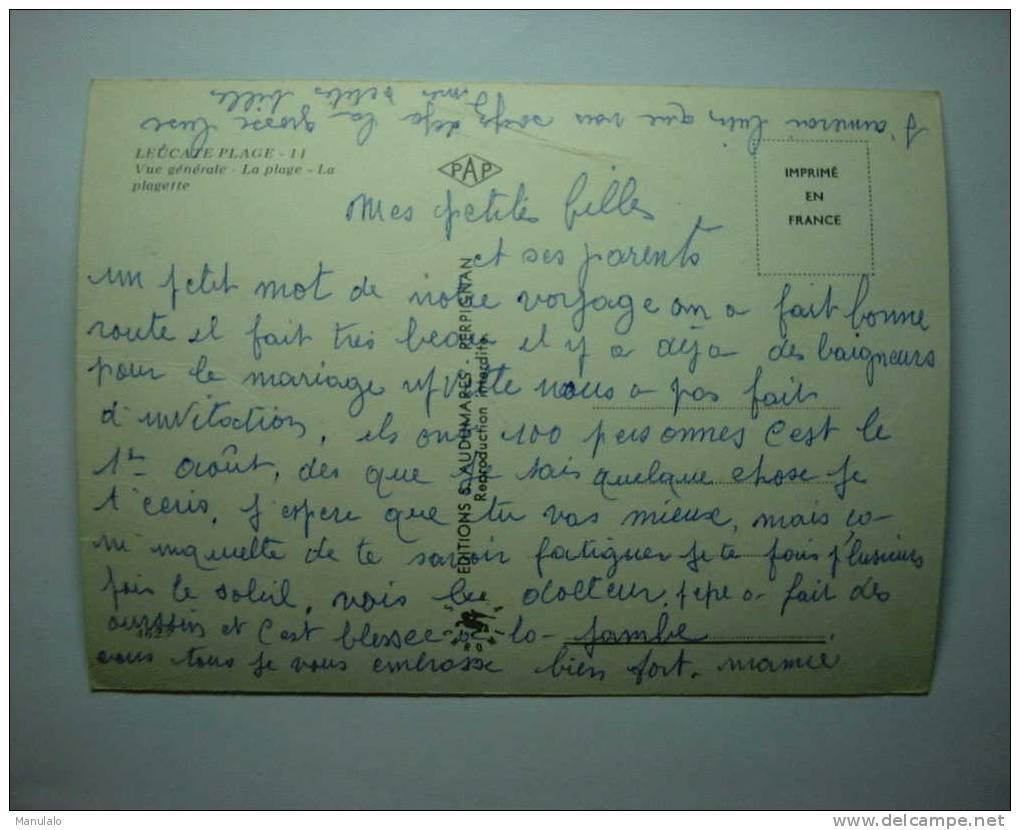 J'aimerai bien que vous soyez deja la grosse bise
mes petites filles
LEUCATE PLAGE - 11
Vue générale - La plage - La
plagette
PAP
IMPRIMÉ
EN
FRANCE
Mes petites filles
et ses parents
un petit mot de notre voyage on a fait bonne
route il fait très beau il y a déja des baigneurs
pour le mariage nous a pas fait
d'invitation, ils ont 100 personnes c'est le
1er août, des que je sais quelque chose je
t'ecris, j'espere que tu vas mieux, mais ça
m'inquiette de te savoir fatiguer je te fais plusieurs
fois le soleil, vois le docteur, pepe a fait des
oursins et c'est blessee a la jambe
vous tous je vous embrasse bien fort. mamie
EDITIONS S. AUDUMARES - PERPIGNAN
Reproduction interdite.
Manulalo
http://www.delcampe.net